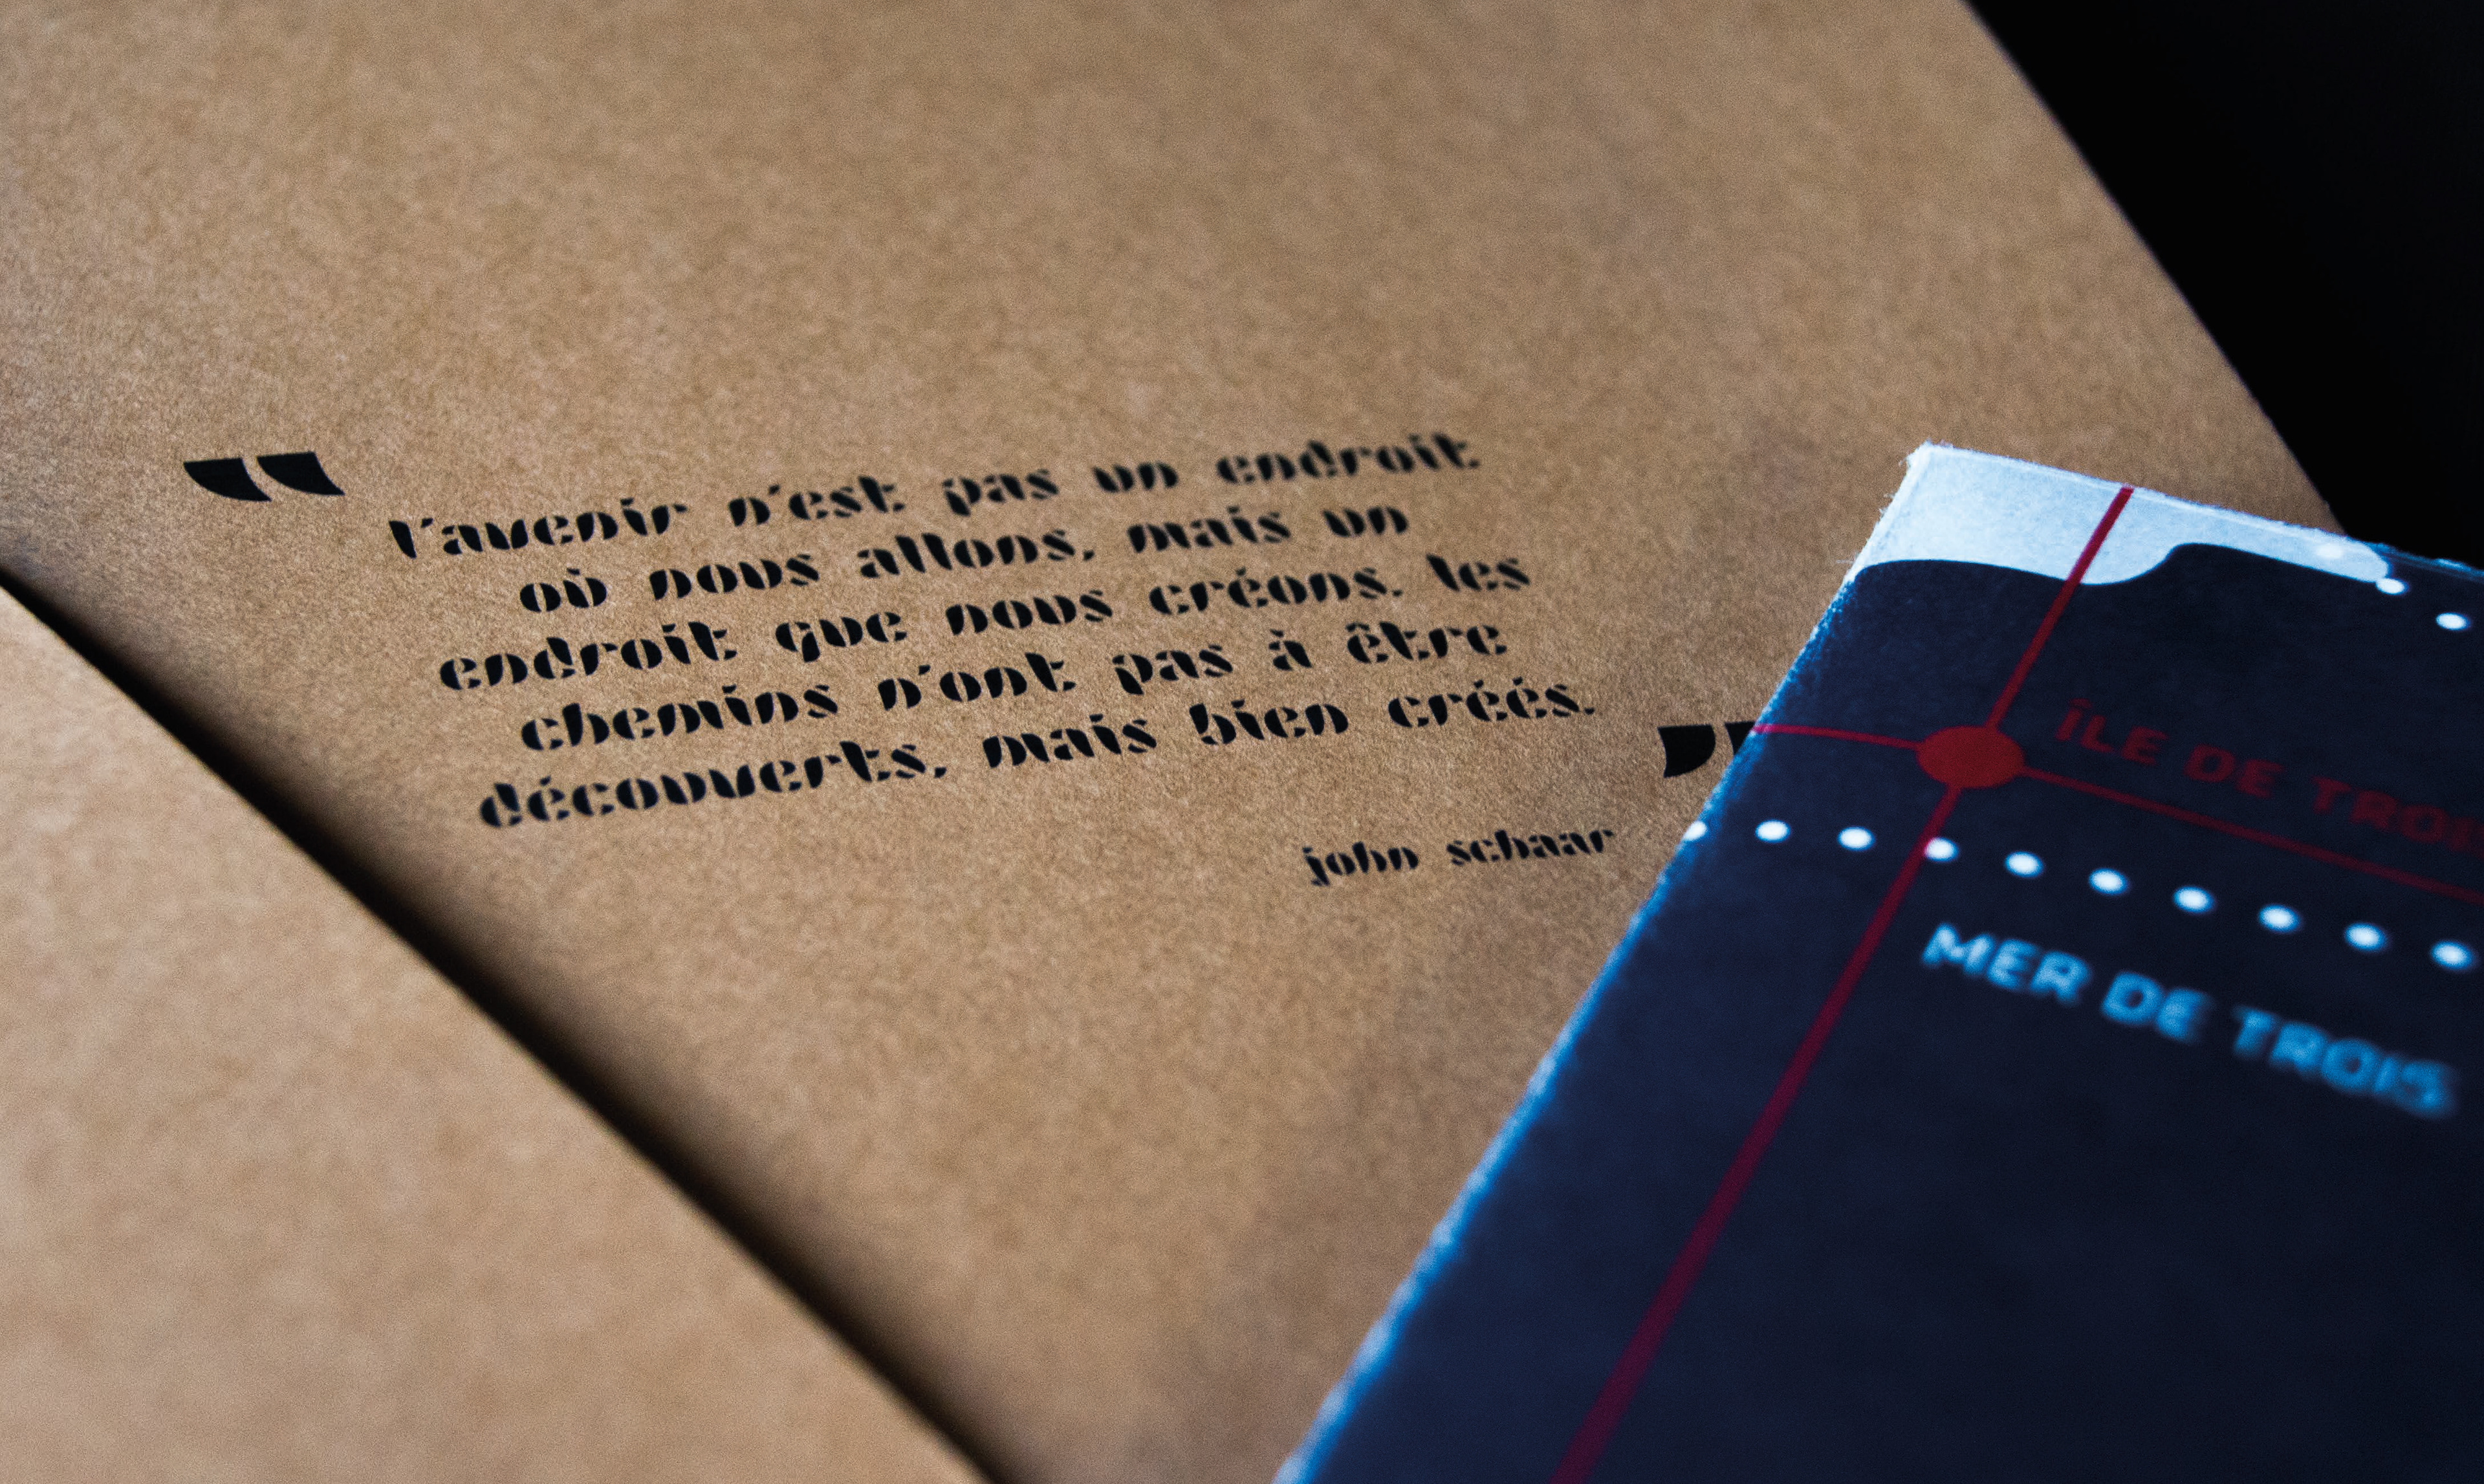 “ l'avenir n'est pas un endroit
où nous allons, mais un
endroit que nous créons. les
chemins n'ont pas à être
découverts, mais bien créés. ”
john schaar
ÎLE DE TROIS
MER DE TROIS